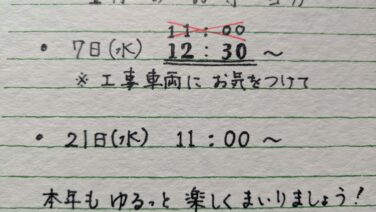 11:00
・7日(水) 12:30～
※工事車両にお気をつけて
・21日(水) 11:00～
本年もゆるっと楽しくまいりましょう!